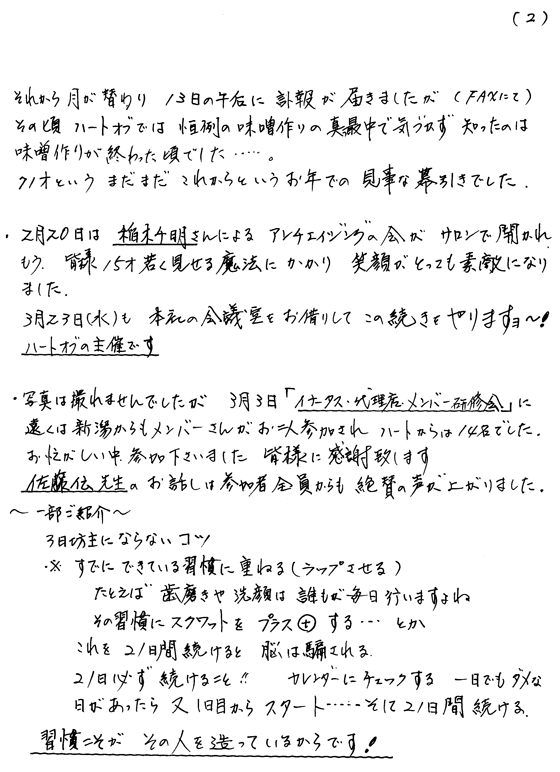 (2)
それから月が替わり 13日の午后に 訃報が 届きましたが (FAXにて)
その頃 ハートオブでは 恒例の味噌作りの真最中で気づかず 知ったのは
味噌作りが終わった頃でした……。
71才という まだまだ これからというお年での 見事な幕引きでした.
・2月20日は 稲木千明さんによる アンチエイジングの会が サロンで開かれ
もう、皆様 15才若く見せる魔法にかかり 笑顔がとっても素敵になり
ました.
3月23日(水)も 本社の会議室をお借りして この続きをやりますョ〜!
ハートオブの主催です
・写真は撮れませんでしたが 3月3日「イナータス・代理店・メンバー研修会」に
遠くは新潟からもメンバーさんがお一人参加され ハートからは14名でした.
お忙がしい中、参加下さいました 皆様に感謝致します
佐藤伝先生のお話しは参加者全員からも 絶賛の声が上がりました.
〜一部ご紹介〜
3日坊主にならないコツ
・※ すでにできている習慣に重ねる(ラップさせる)
たとえば 歯磨きや洗顔は 誰もが毎日行いますよね
その習慣にスクワットを プラス⊕する… とか
これを 21日間続けると 脳は騙される.
21日必ず 続けること!! カレンダーにチェックする 一日でもダメな
日があったら 又1日目から スタート……そして21日間 続ける.
習慣こそが その人を造っているからです!